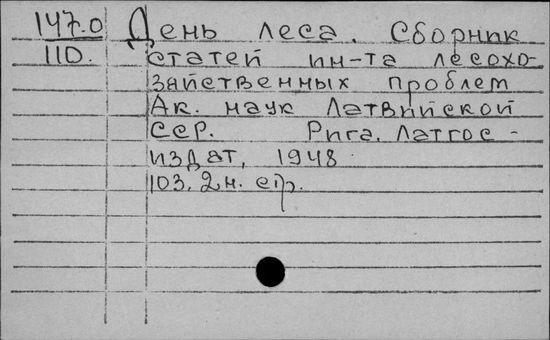 147.0 День леса. Сборник
110. статей ин-та лесохо-
зяйственных проблем
Ак. наук Латвийской
ССР. Рига, Латгос-
издат, 1948
103, 2 н. стр.